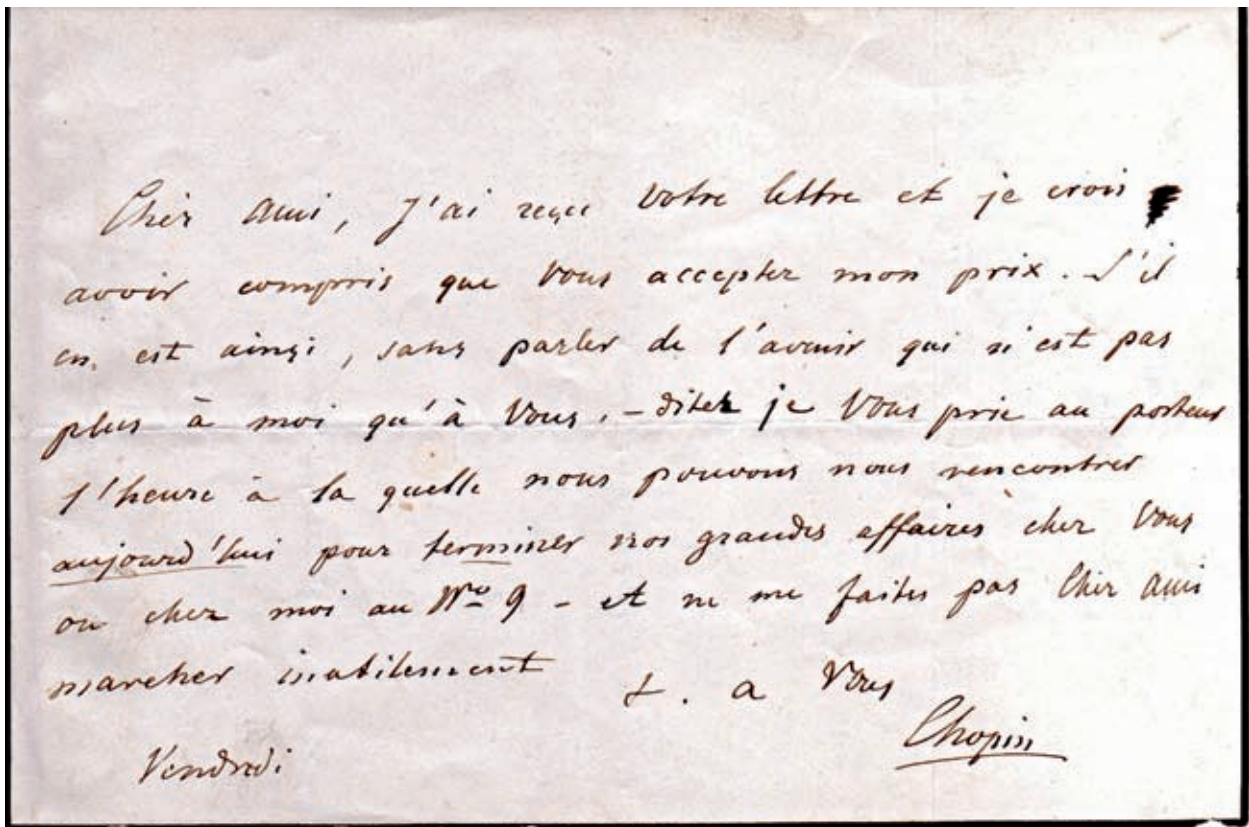 Cher Ami, J'ai reçu votre lettre et je crois
avoir compris que Vous acceptez mon prix. S'il
en est ainsi, sans parler de l'avenir qui n'est pas
plus à moi qu'à Vous. – dites je Vous prie au porteur
l'heure à la quelle nous pouvons nous rencontrer
aujourd'hui pour terminer nos grandes affaires chez Vous
ou chez moi au No 9 – et ne me faites pas Cher Ami
marcher inutilement
t. a Vous
Chopin
Vendredi